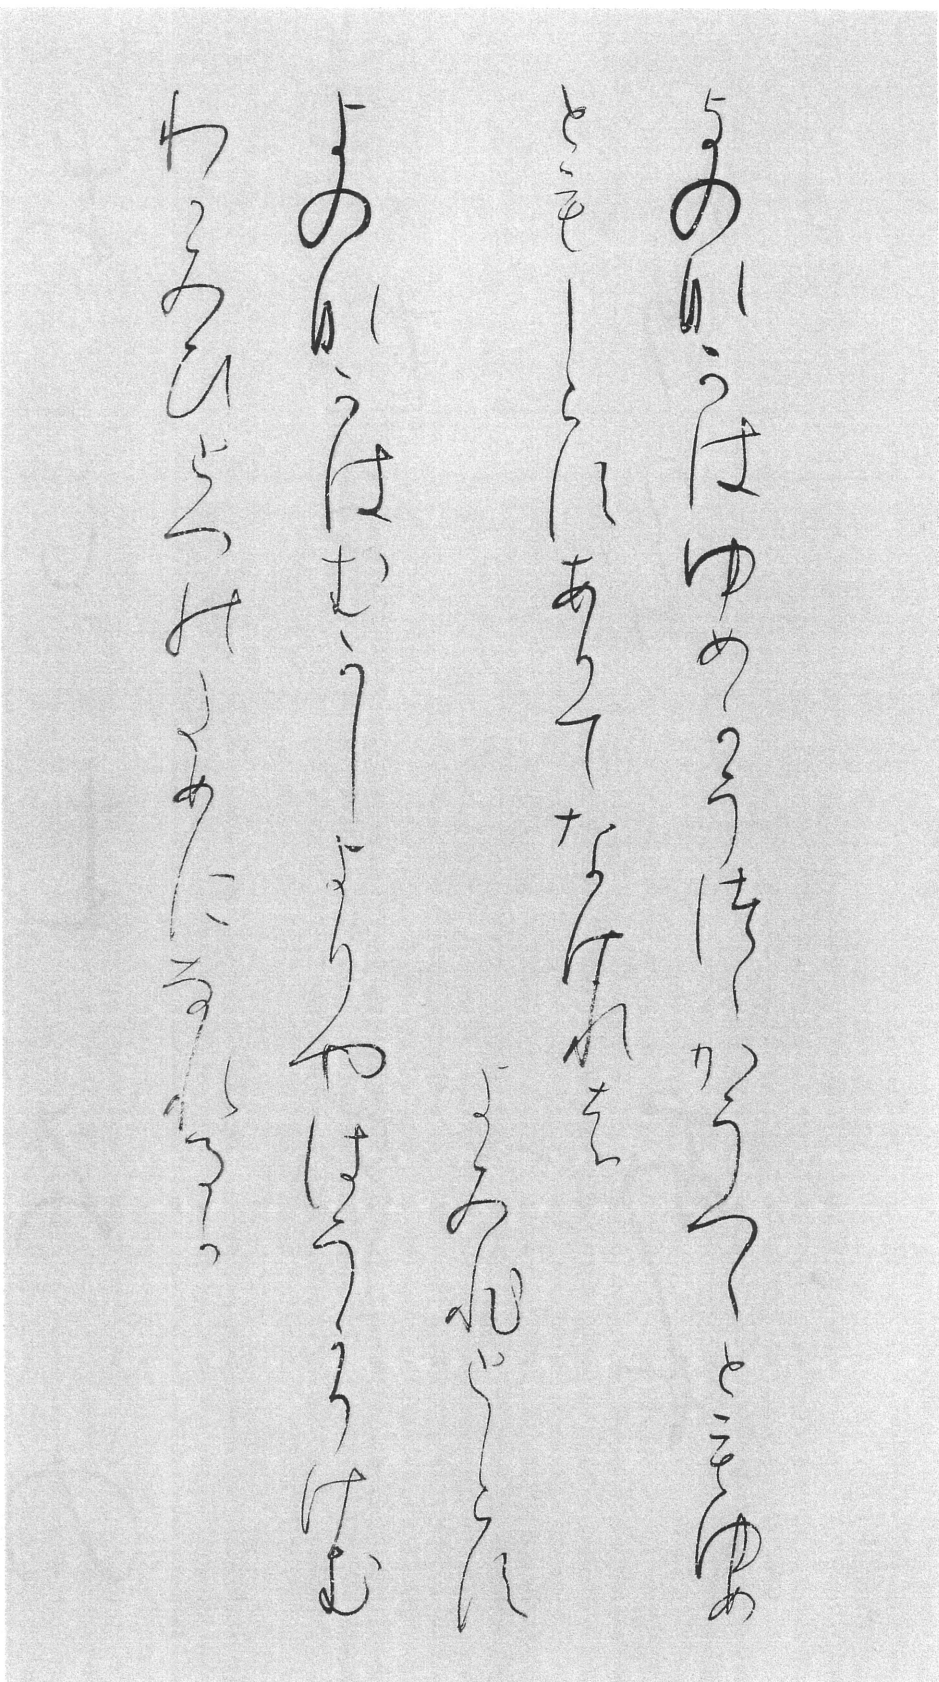 よのなかはゆめかうつゝかうつゝともゆめ
ともしらすありてなけれは
よみひとしらす
よのなかはむかしよりやはうかりけむ
わかみひとつのためになれるか